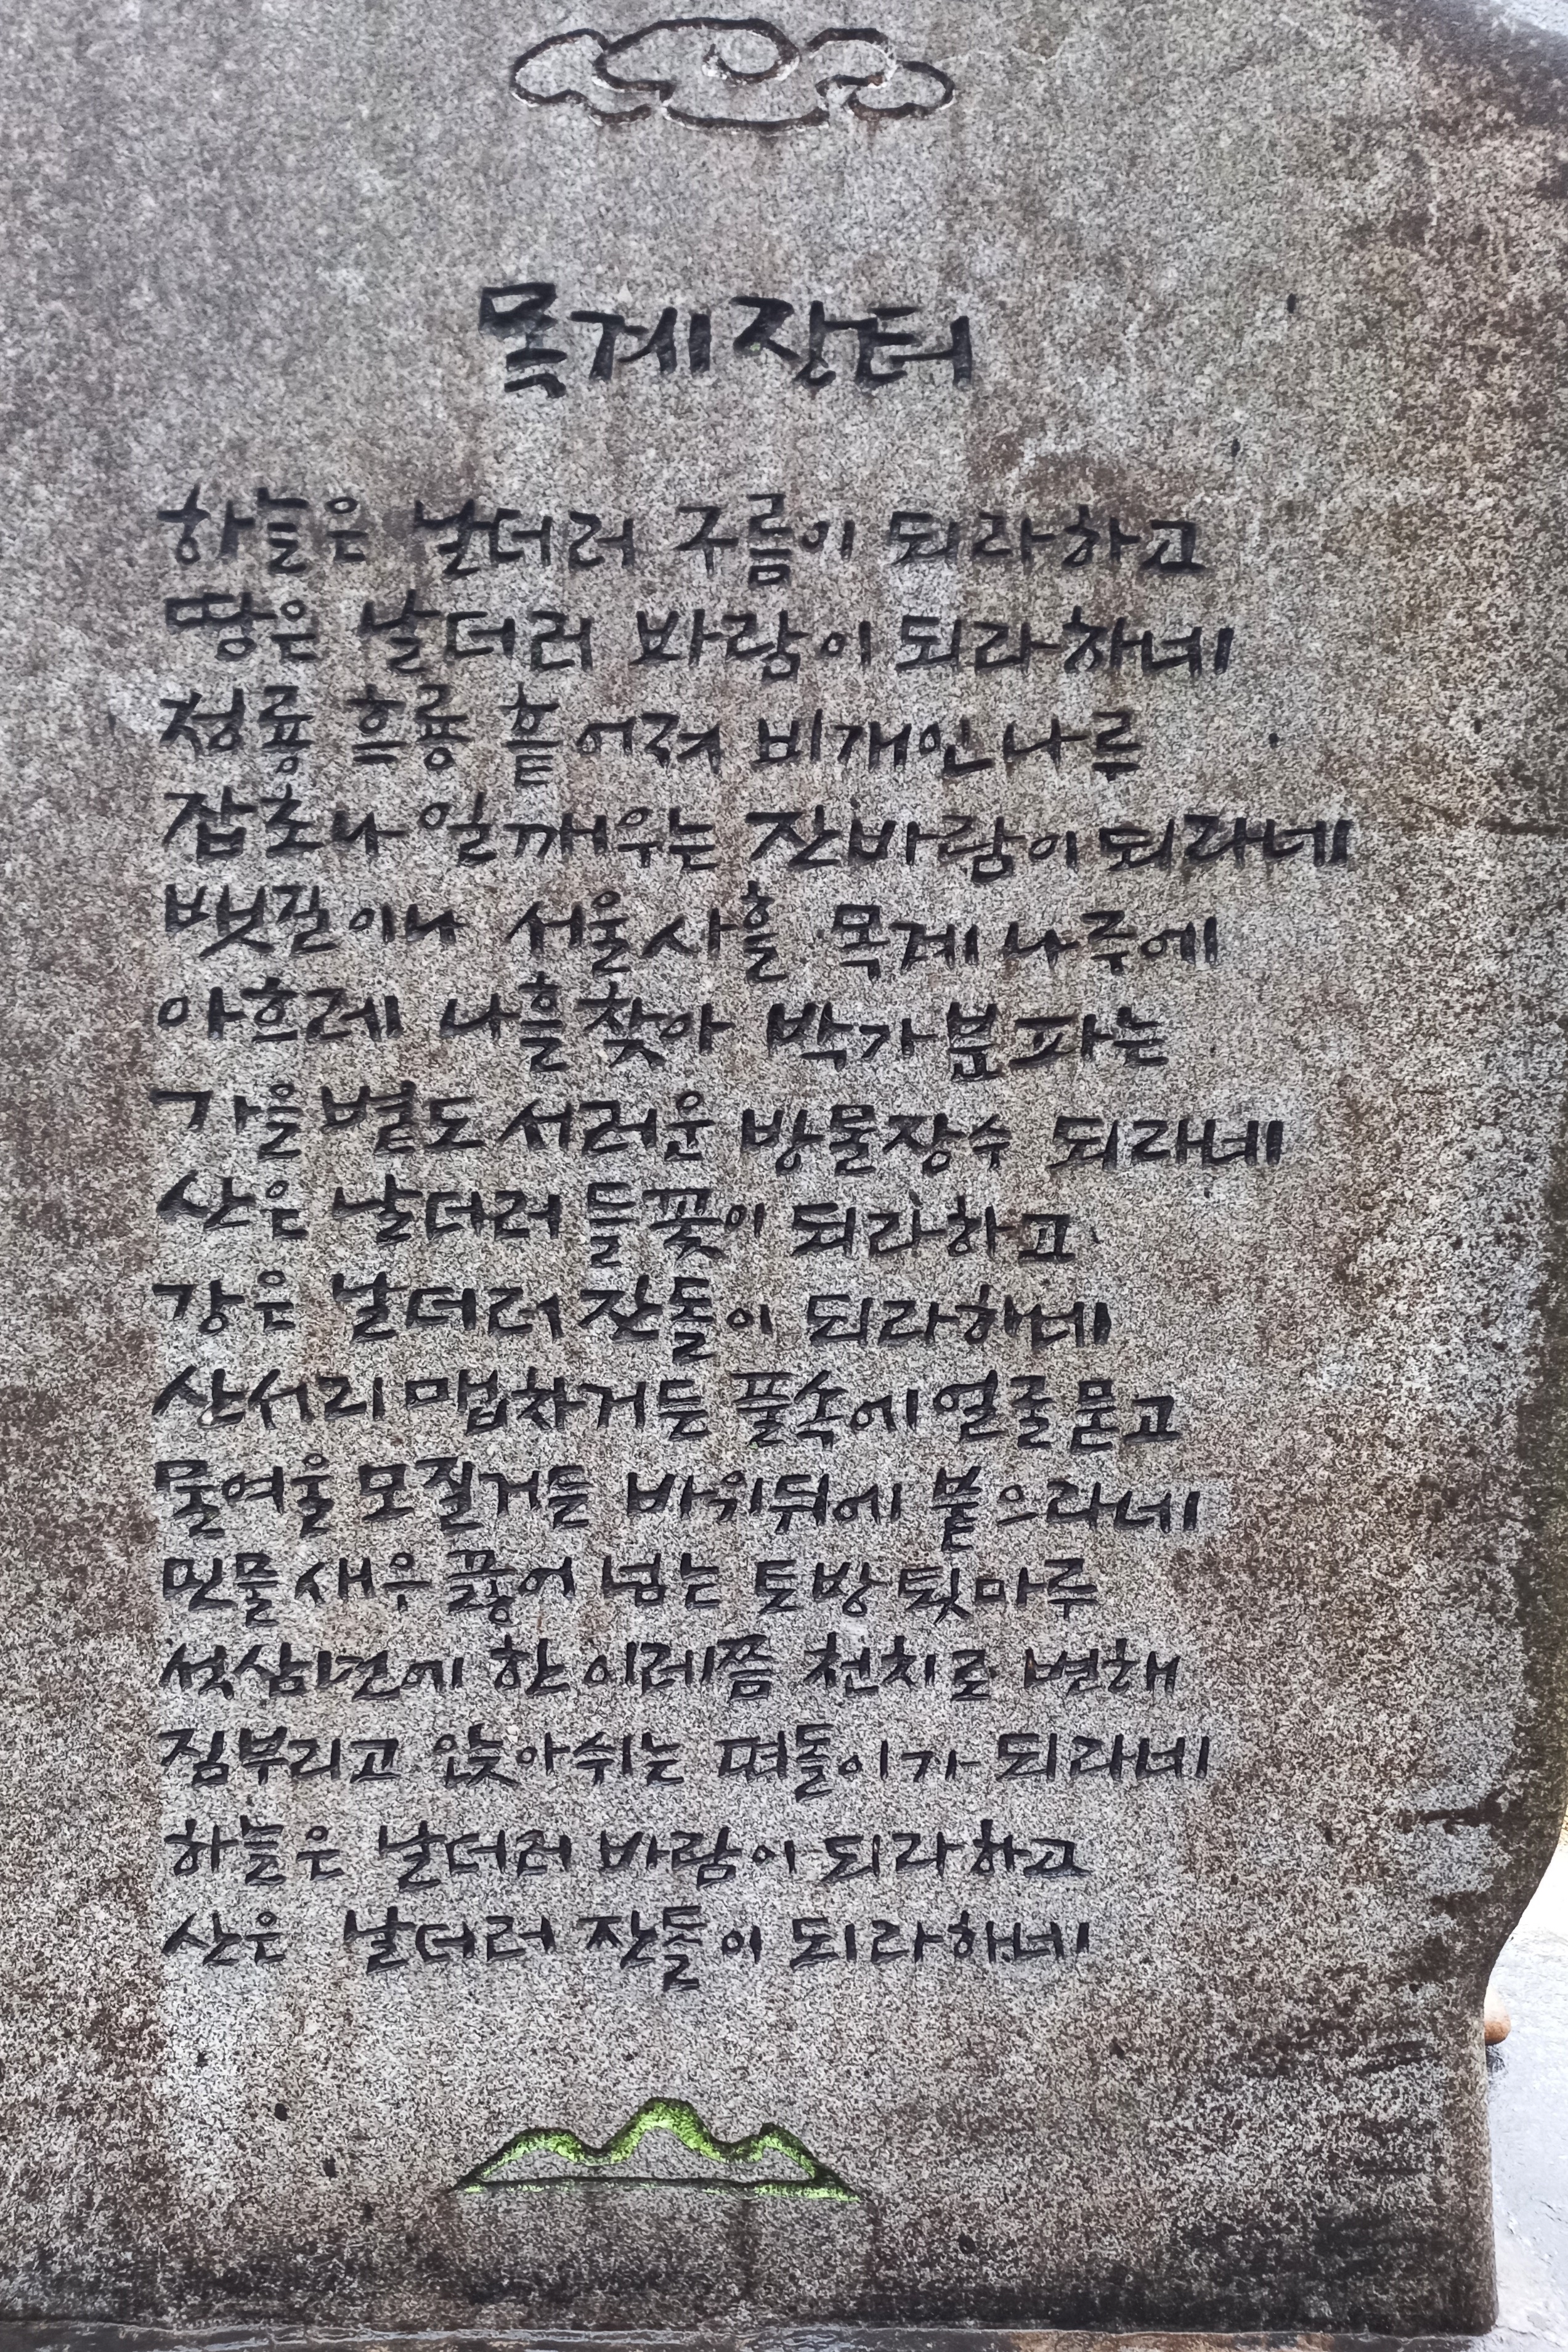 목계장터
하늘은 날더러 구름이 되라하고
땅은 날더러 바람이 되라하네
청룡 흑룡 흩어져 비개인 나루
잡초나 일깨우는 잔바람이 되라네
뱃길이나 서울사흘 목계 나루에
아흐레 나흘찾아 박가분파는
가을볕도 서러운 방물장수 되라네
산은 날더러 들꽃이 되라하고
강은 날더러 잔돌이 되라하네
산서리 맵차거든 풀속에 얼굴묻고
물여울 모질거든 바위뒤에 붙으라네
민물 새우 끓어 넘는 토방 툇마루
석삼년에 한 이레쯤 천치로 변해
짐부리고 앉아쉬는 떠돌이가 되라네
하늘은 날더러 바람이 되라하고
산은 날더러 잔돌이 되라하네